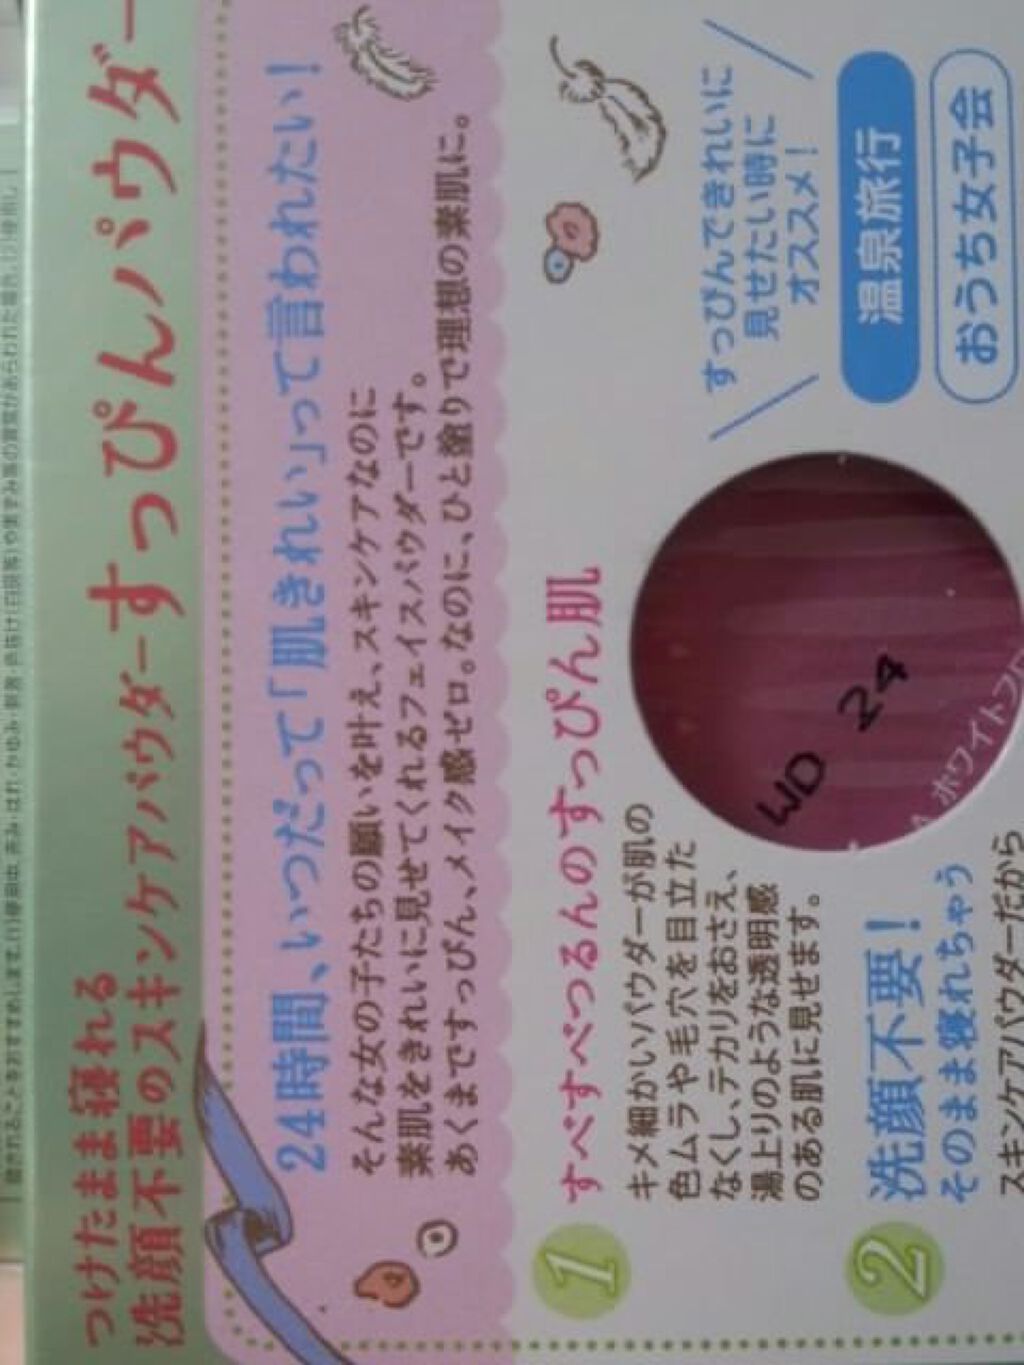 つけたまま寝れる
洗顔不要のスキンケアパウダーすっぴんパウダー
24時間、いつだって「肌きれい」って言われたい!
そんな女の子たちの願いを叶え、スキンケアなのに
素肌をきれいに見せてくれるフェイスパウダーです。
あくまですっぴん、メイク感ゼロ。なのに、ひと塗りで理想の素肌に。
1
すべすべつるんのすっぴん肌
キメ細かいパウダーが肌の
色ムラや毛穴を目立た
なくし、テカリをおさえ、
湯上りのような透明感
のある肌に見せます。
すっぴんできれいに
見せたい時に
オススメ!
温泉旅行
おうち女子会
WD 24
ホワイトフ
2
洗顔不要!
そのまま寝れちゃう
スキンケアパウダーだから